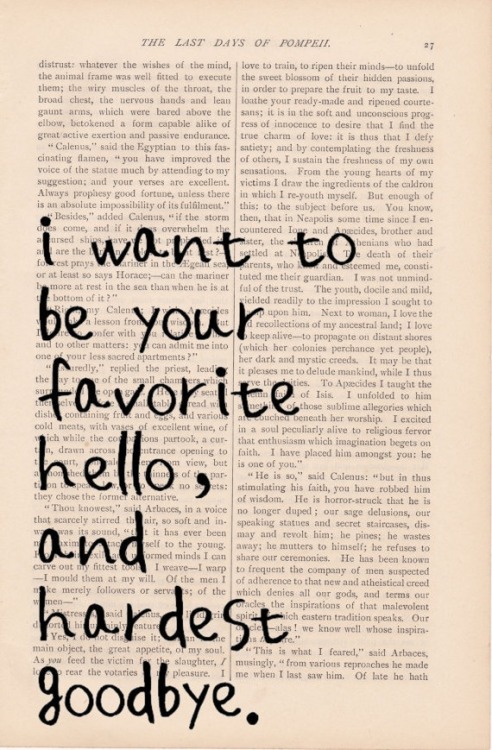 THE LAST DAYS OF POMPEII.
27
distrust: whatever the wishes of the mind,
the animal frame was well fitted to execute
them; the wiry muscles of the throat, the
broad chest, the nervous hands and lean
gaunt arms, which were bared above the
elbow, betokened a form capable alike of
great active exertion and passive endurance.
“Calenus,” said the Egyptian to this fas-
cinating flamen, “you have improved the
voice of the statue much by attending to my
suggestion; and your verses are excellent.
Always prophesy good fortune, unless there
is an absolute impossibility of its fulfilment.”
“Besides,” added Calenus, “if the storm
does come, and if it overwhelm the
or at least so says Horace;—can the mariner
be more at rest in the sea than when he is at
bottom of it?”
a lesson from
confer with
and to other matters: you can admit me into
one of your less sacred apartments?”
replied the priest, leading
of the small chambers which
containing fruit and eggs, and various
cold meats, with vessels of excellent wine, of
which while the companions partook, a cur-
drawn across the entrance opening to
view, but
they chose the former alternative.
“Thou knowest,” said Arbaces, in a voice
that scarcely stirred the air, so soft and in-
ward was its sound, “that it has ever been
my maxim to attach myself to the young.
minds I can
carve out my fittest tools. I weave—I warp
—I mould them at my will. Of the men I
make merely followers or servants; of the
women—”
main object, the great appetite, of my soul.
As you feed the victim for the slaughter, I
love to rear the votaries of my pleasure. I
love to train, to ripen their minds—to unfold
the sweet blossom of their hidden passions,
in order to prepare the fruit to my taste. I
loathe your ready-made and ripened courte-
sans; it is in the soft and unconscious prog-
ress of innocence to desire that I find the
true charm of love: it is thus that I defy
satiety; and by contemplating the freshness
of others, I sustain the freshness of my own
sensations. From the young hearts of my
victims I draw the ingredients of the caldron
in which I re-youth myself. But enough of
this; to the subject before us. You know,
then, that in Neapolis some time since I en-
countered Ione and Apæcides, brother and
sister, the Athenians who had
settled at Neapolis. The death of their
parents, who knew and esteemed me, consti-
tuted me their guardian. I was not unmind-
ful of the trust. The youth, docile and mild,
yielded readily to the impression I sought to
upon him. Next to woman, I love the
old recollections of my ancestral land; I love
to keep alive—to propagate on distant shores
(which her colonies perchance yet people),
her dark and mystic creeds. It may be that
it pleases me to delude mankind, while I thus
serve the deities. To Apæcides I taught the
of Isis. I unfolded to him
those sublime allegories which
are couched beneath her worship. I excited
in a soul peculiarly alive to religious fervor
that enthusiasm which imagination begets on
faith. I have placed him amongst you: he
is one of you.”
“He is so,” said Calenus: “but in thus
stimulating his faith, you have robbed him
of wisdom. He is horror-struck that he is
no longer duped; our sage delusions, our
speaking statues and secret staircases, dis-
may and revolt him; he pines; he wastes
away; he mutters to himself; he refuses to
share our ceremonies. He has been known
to frequent the company of men suspected
of adherence to that new and atheistical creed
which denies all our gods, and terms our
oracles the inspirations of that malevolent
spirit of which eastern tradition speaks. Our
oracles—alas! we know well whose inspira-
tions they are.”
“This is what I feared,” said Arbaces,
musingly, “from various reproaches he made
me when I last saw him. Of late he hath
i want to
be your
favorite
hello,
and
hardest
goodbye.